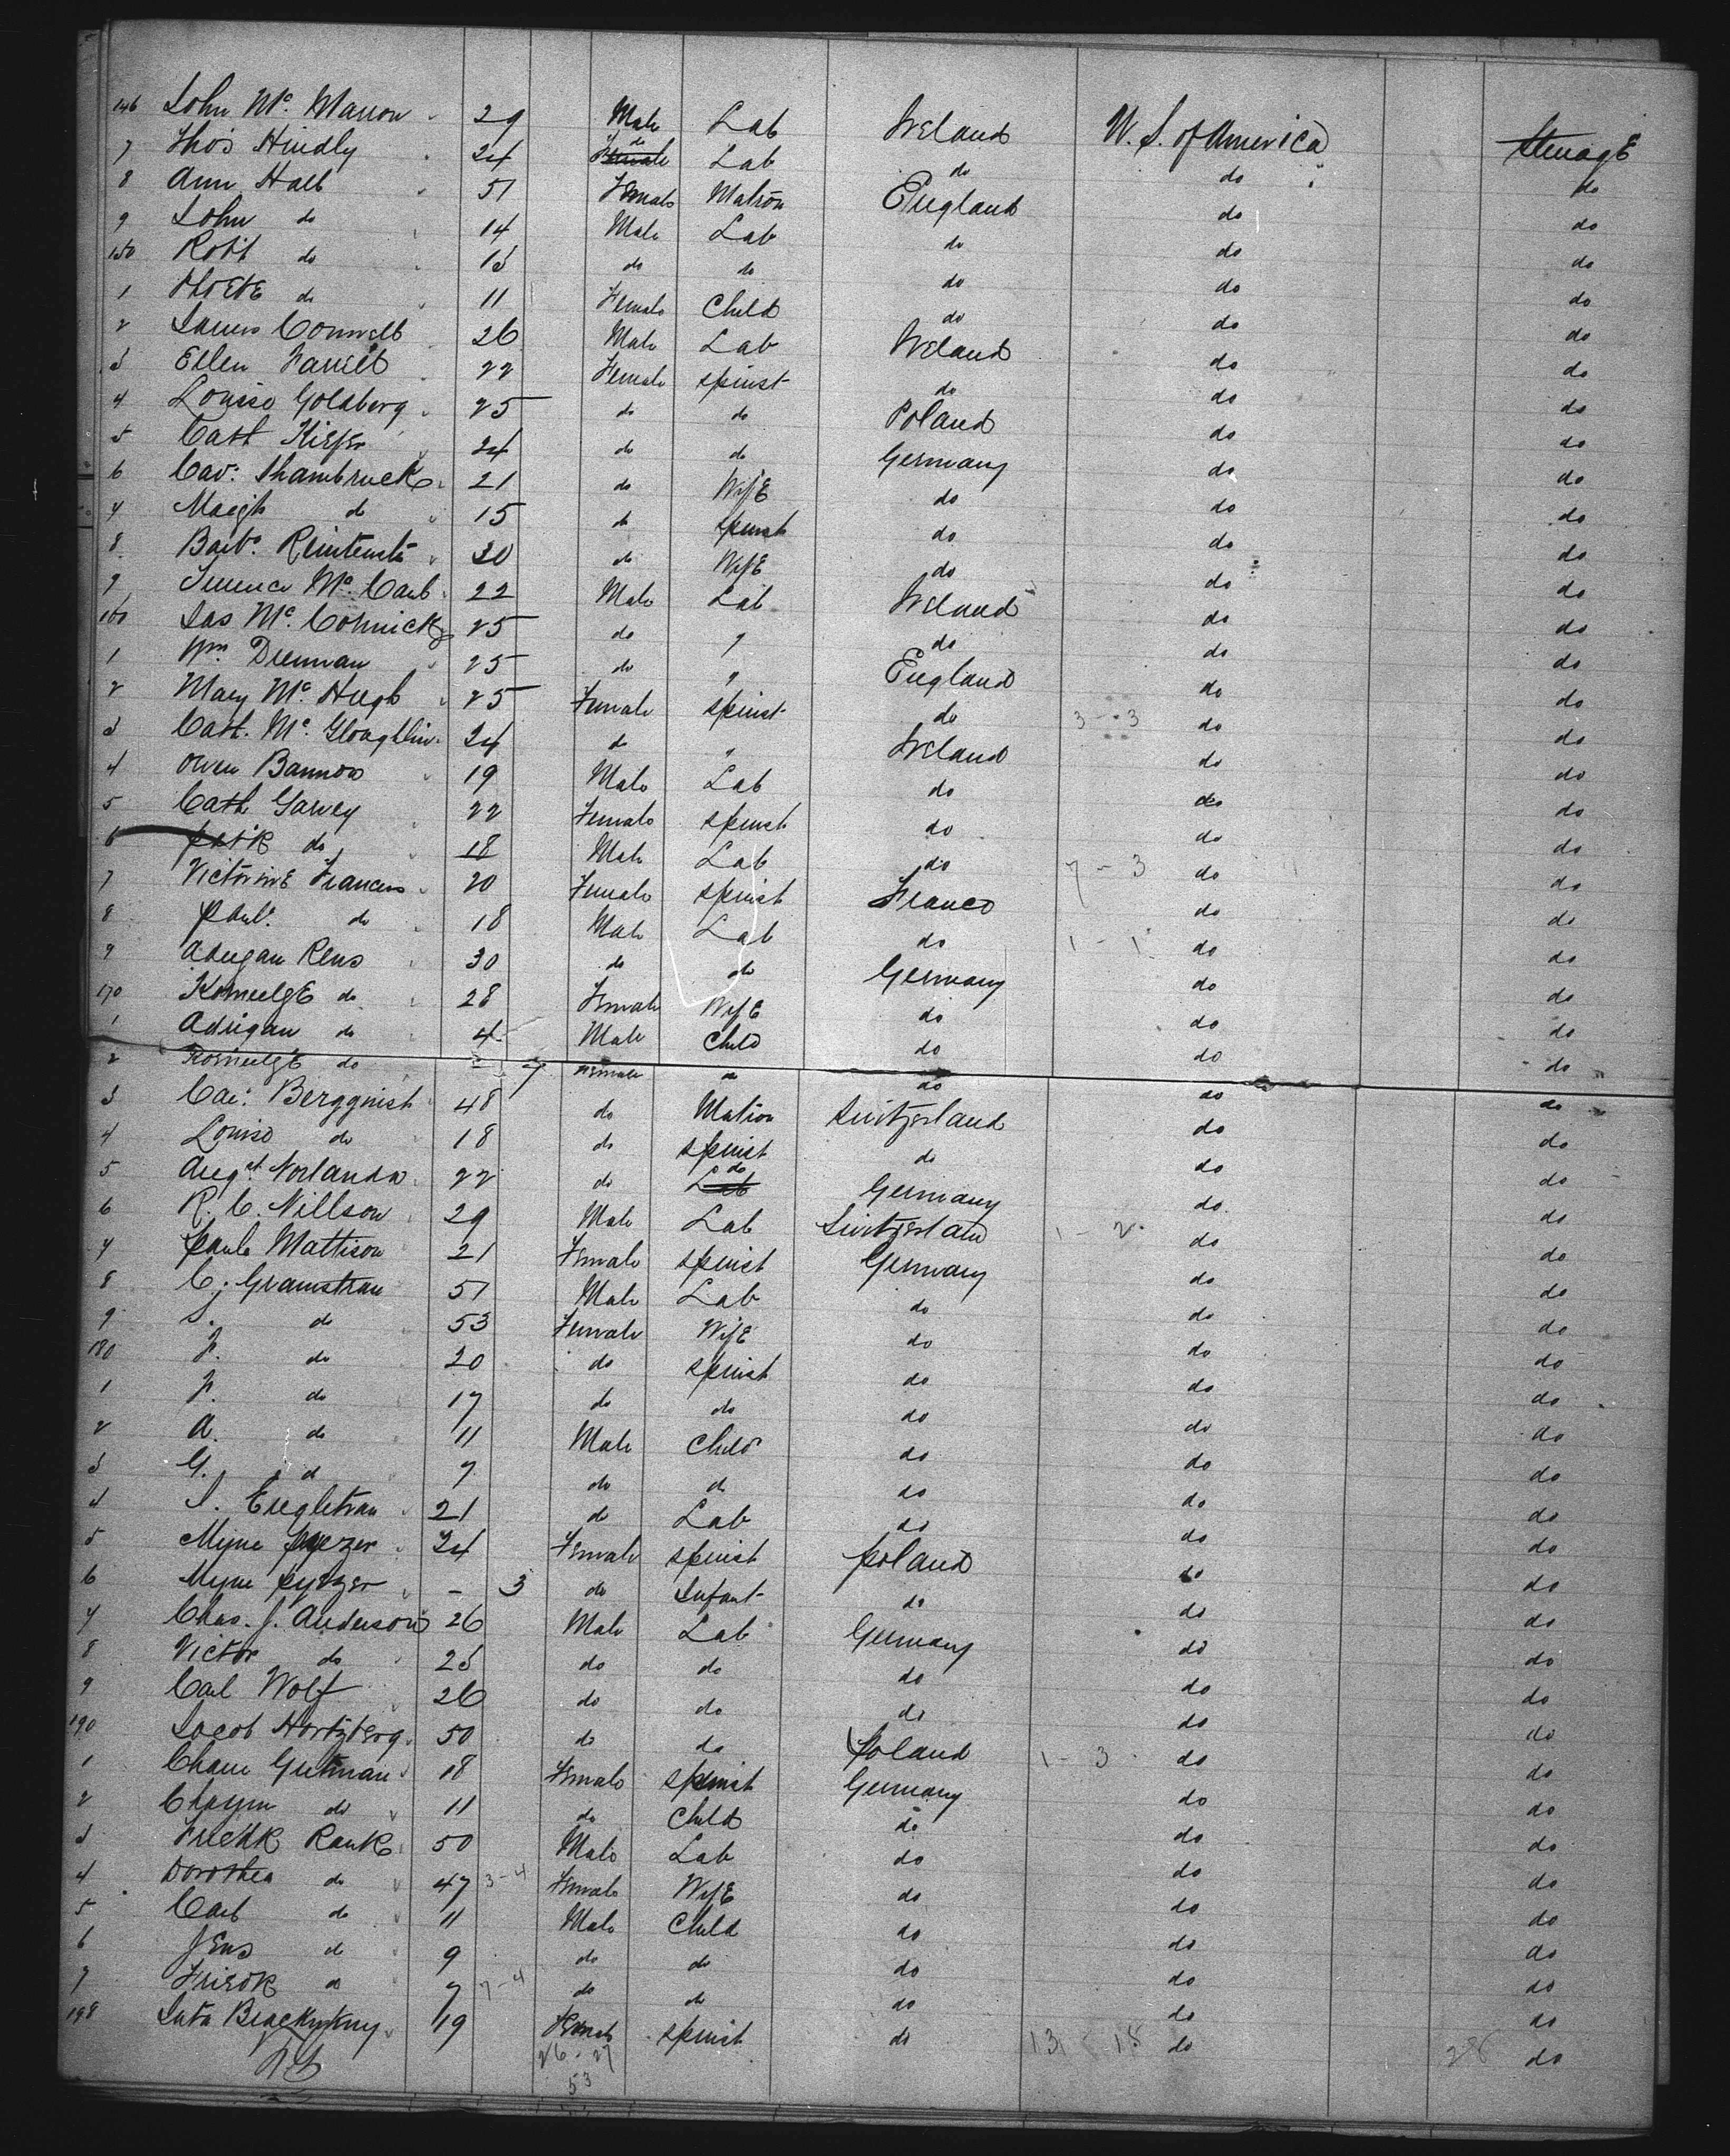 146 John Mc Marron 29 Male Lab Ireland U. S. of America Steerage
7 Thos Hindly 24 do Lab do do do
8 Ann Hall 51 Female Matron England do do
9 John do 14 Male Lab do do do
150 Robt do 13 do do do do do
1 Phoebe do 11 Female Child do do do
2 James Connell 26 Male Lab Ireland do do
3 Ellen Farrell 22 Female Spinst do do do
4 Louise Goldberg 25 do do Poland do do
5 Cath Kiefer 24 do do Germany do do
6 Car: 21 do Wife do do do
7 do 15 do Spinst do do do
8 Barba 30 do Wife do do do
9 Terence Mc Carb 22 Male Lab Ireland do do
160 Jas Mc Cormick 25 do " do do do
1 Wm Drennan 25 do " England do do
2 Mary Mc Hugh 25 Female Spinst do 3-3 do do
3 Cath. Mc Gloaghlin 24 do " Ireland do do
4 Owen Bannon 19 Male Lab do do do
5 Cath Garvey 22 Female Spinst do do do
6 Patk do 18 Male Lab do do do
7 Victorine Francis 20 Female Spinst France 7-3 do do
8 Paul. do 18 Male Lab do 1-1 do do
9 Adrigan Rens 30 do do Germany do do
170 do 28 Female Wife do do do
1 Adrigan do 4 Male Child do do do
2 do 7 Female do do do do
3 Car: Bergquist 48 do Matron Switzerland do do
4 Louise do 18 do Spinst do do do
5 Augst Norlanda 22 do do Germany do do
6 R. C. Nillson 29 Male Lab Switzerland 1-2 do do
7 Paula Mattison 21 Female Spinst Germany do do
8 C. Gramstran 51 Male Lab do do do
9 S. do 53 Female Wife do do do
180 J. do 20 do Spinst do do do
1 J. do 17 do do do do do
2 A. do 11 Male Child do do do
3 G. do 7 do do do do do
4 S. Engletran 21 do Lab do do do
5 Myne 24 Female Spinst Poland do do
6 Myne - 3 do Infant do do do
7 Chas. J. Anderson 26 Male Lab Germany do do
8 Victor do 23 do do do do do
9 Carl Wolf 26 do do do do do
190 Jacob Hortzberg 50 do do Poland 1-3 do do
1 Chane Gutman 18 Female Spinst Germany do do
2 Chaym do 11 do Child do do do
3 Friedk Rank 50 Male Lab do do do
4 Dorothea do 47 3-4 Female Wife do do do
5 Carl do 11 Male Child do do do
6 Jens do 9 do do do do do
7 Friedk do 7 7-4 do do do do do
198 19 Female Spinst do 13 18 do 28 do
26 - 27
53